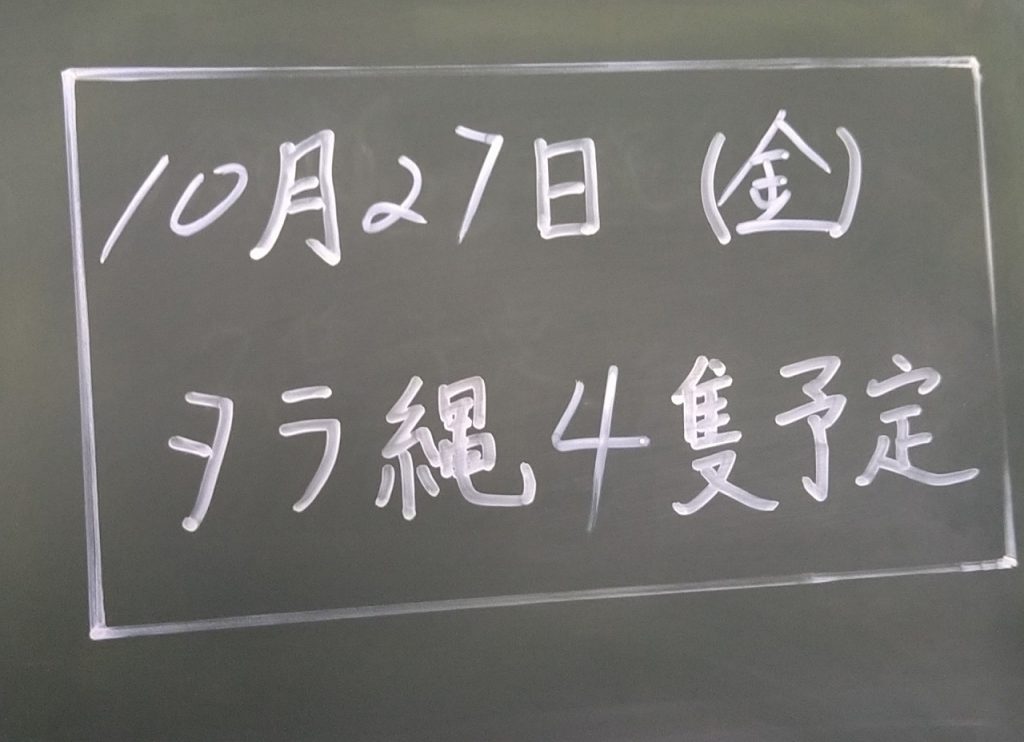 10月27日（金）
タラ縄4隻予定